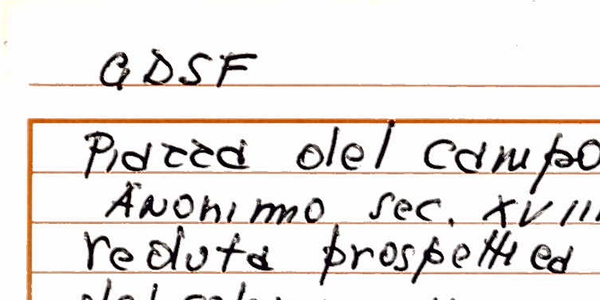 GDSF
Piazza del campo
Anonimo sec. XVIII
veduta prospetti ca